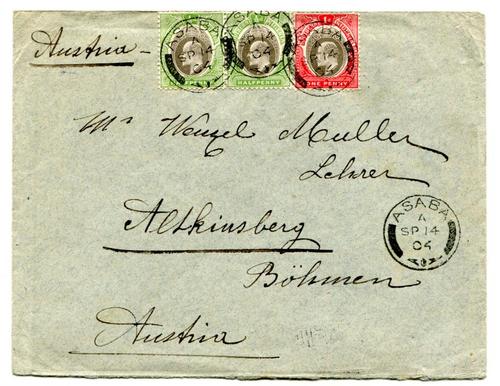 Austria
ASABA
SP 14
04
ASABA
SP 14
04
HALFPENNY
ASABA
14
04
ONE PENNY
Mr Wenzel Muller
Lehrer
Altkinsberg
Böhmen
Austria
ASABA
A
SP 14
04